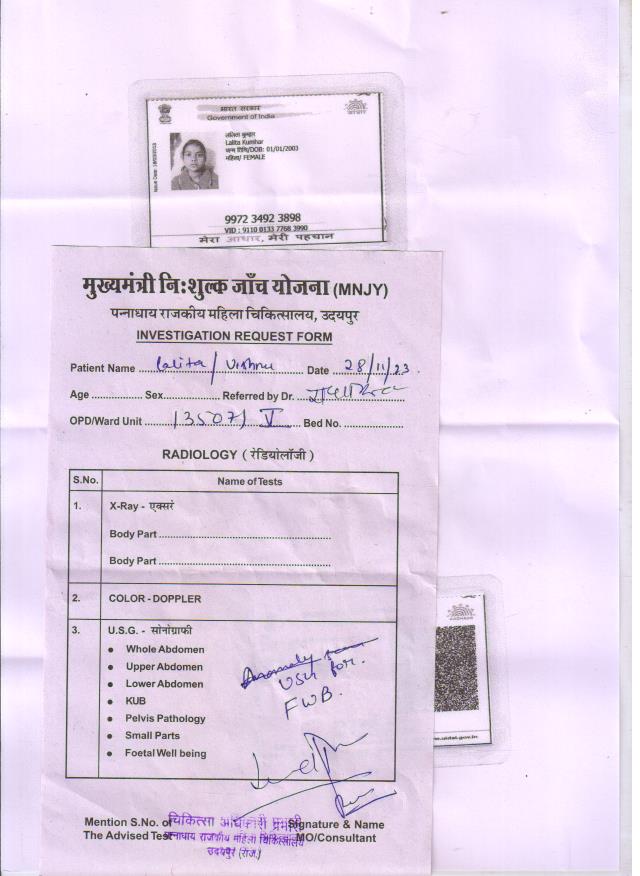 भारत सरकार
Government of India
ललिता कुम्हार
Lalita Kumhar
जन्म तिथि/DOB: 01/01/2003
महिला/ FEMALE
9972 3492 3898
VID : 9110 0133 7768 3990
मेरा आधार, मेरी पहचान
मुख्यमंत्री निःशुल्क जाँच योजना (MNJY)
पन्नाधाय राजकीय महिला चिकित्सालय, उदयपुर
INVESTIGATION REQUEST FORM
Patient Name Lalita / Vishnu Date 28/11/23
Age Sex Referred by Dr.
OPD/Ward Unit 13507/ V Bed No.
RADIOLOGY ( रेडियोलॉजी )
S.No. Name of Tests
1. X-Ray - एक्सरे
Body Part
Body Part
2. COLOR - DOPPLER
3. U.S.G. - सोनोग्राफी
Whole Abdomen
Upper Abdomen
Lower Abdomen
KUB
Pelvis Pathology
Small Parts
Foetal Well being
USG for.
FWB.
AADHAAR
www.uidai.gov.in
Mention S.No. of
The Advised Test
चिकित्सा अधिकारी प्रभारी
पन्नाधाय राजकीय महिला चिकित्सालय
उदयपुर (राज.)
Signature & Name
MO/Consultant